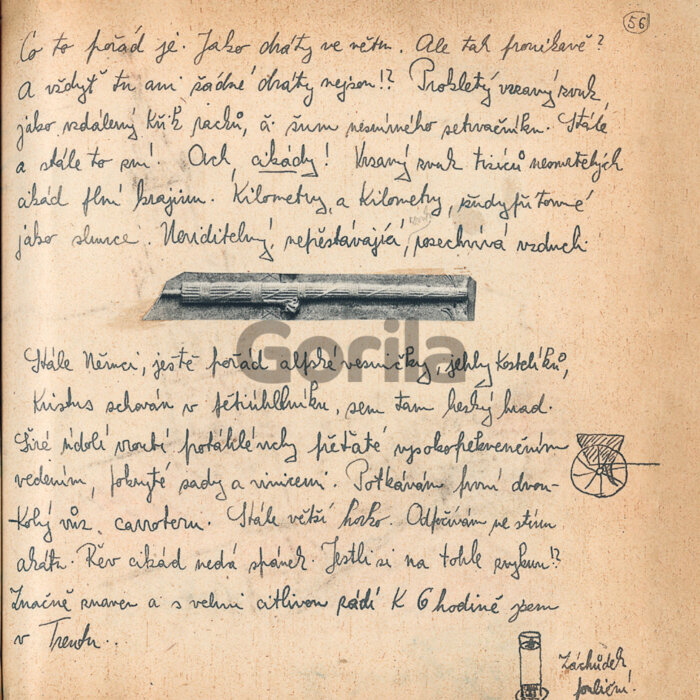 56
Co to pořád je. Jako dráty ve větru. Ale tak pronikavě?
A vždyť tu ani žádné dráty nejsou!? Prokletý vrzavý zvuk,
jako vzdálený křik racků, a šum nesmírného setrvačníku. Stále
a stále to zní! Och, cikády! Vrzavý zvuk tisíců neomatelných
cikád plní krajinu. Kilometry a kilometry, všudypřítomné
jako slunce. Neviditelný, nepřestávající, prosechnívá vzduch
Gorila
Stále Němci, ještě pořád alpské vesničky, jehly kostelíků,
Kristus schován v pětiúhelníku, sem tam hezký hrad.
Širé údolí vroubí protáhlé vrchy přeťaté vysokofrekvenčním
vedením, pokryté sady a vinicemi. Potkávám první dvou-
kolý vůz, carroteru. Stále větší horko. Odpočívám ve stínu
akátu. Řev cikád nedá spánek. Jestli si na tohle zvyknu!?
Značně znaven a s velmi citlivou zádí k 6 hodině jsem
v Trentu..
Záchůdek
pouliční!